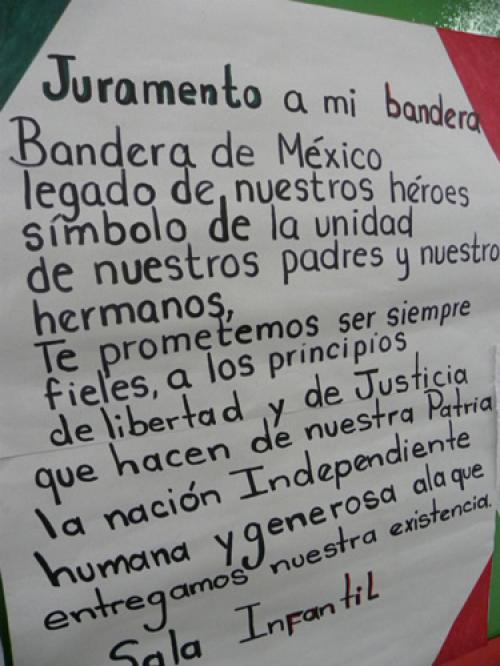 Juramento a mi bandera
Bandera de México
legado de nuestros héroes
símbolo de la unidad
de nuestros padres y nuestro
hermanos,
Te prometemos ser siempre
fieles, a los principios
de libertad y de Justicia
que hacen de nuestra Patria
la nación Independiente
humana y generosa ala que
entregamos nuestra existencia.
Sala Infantil